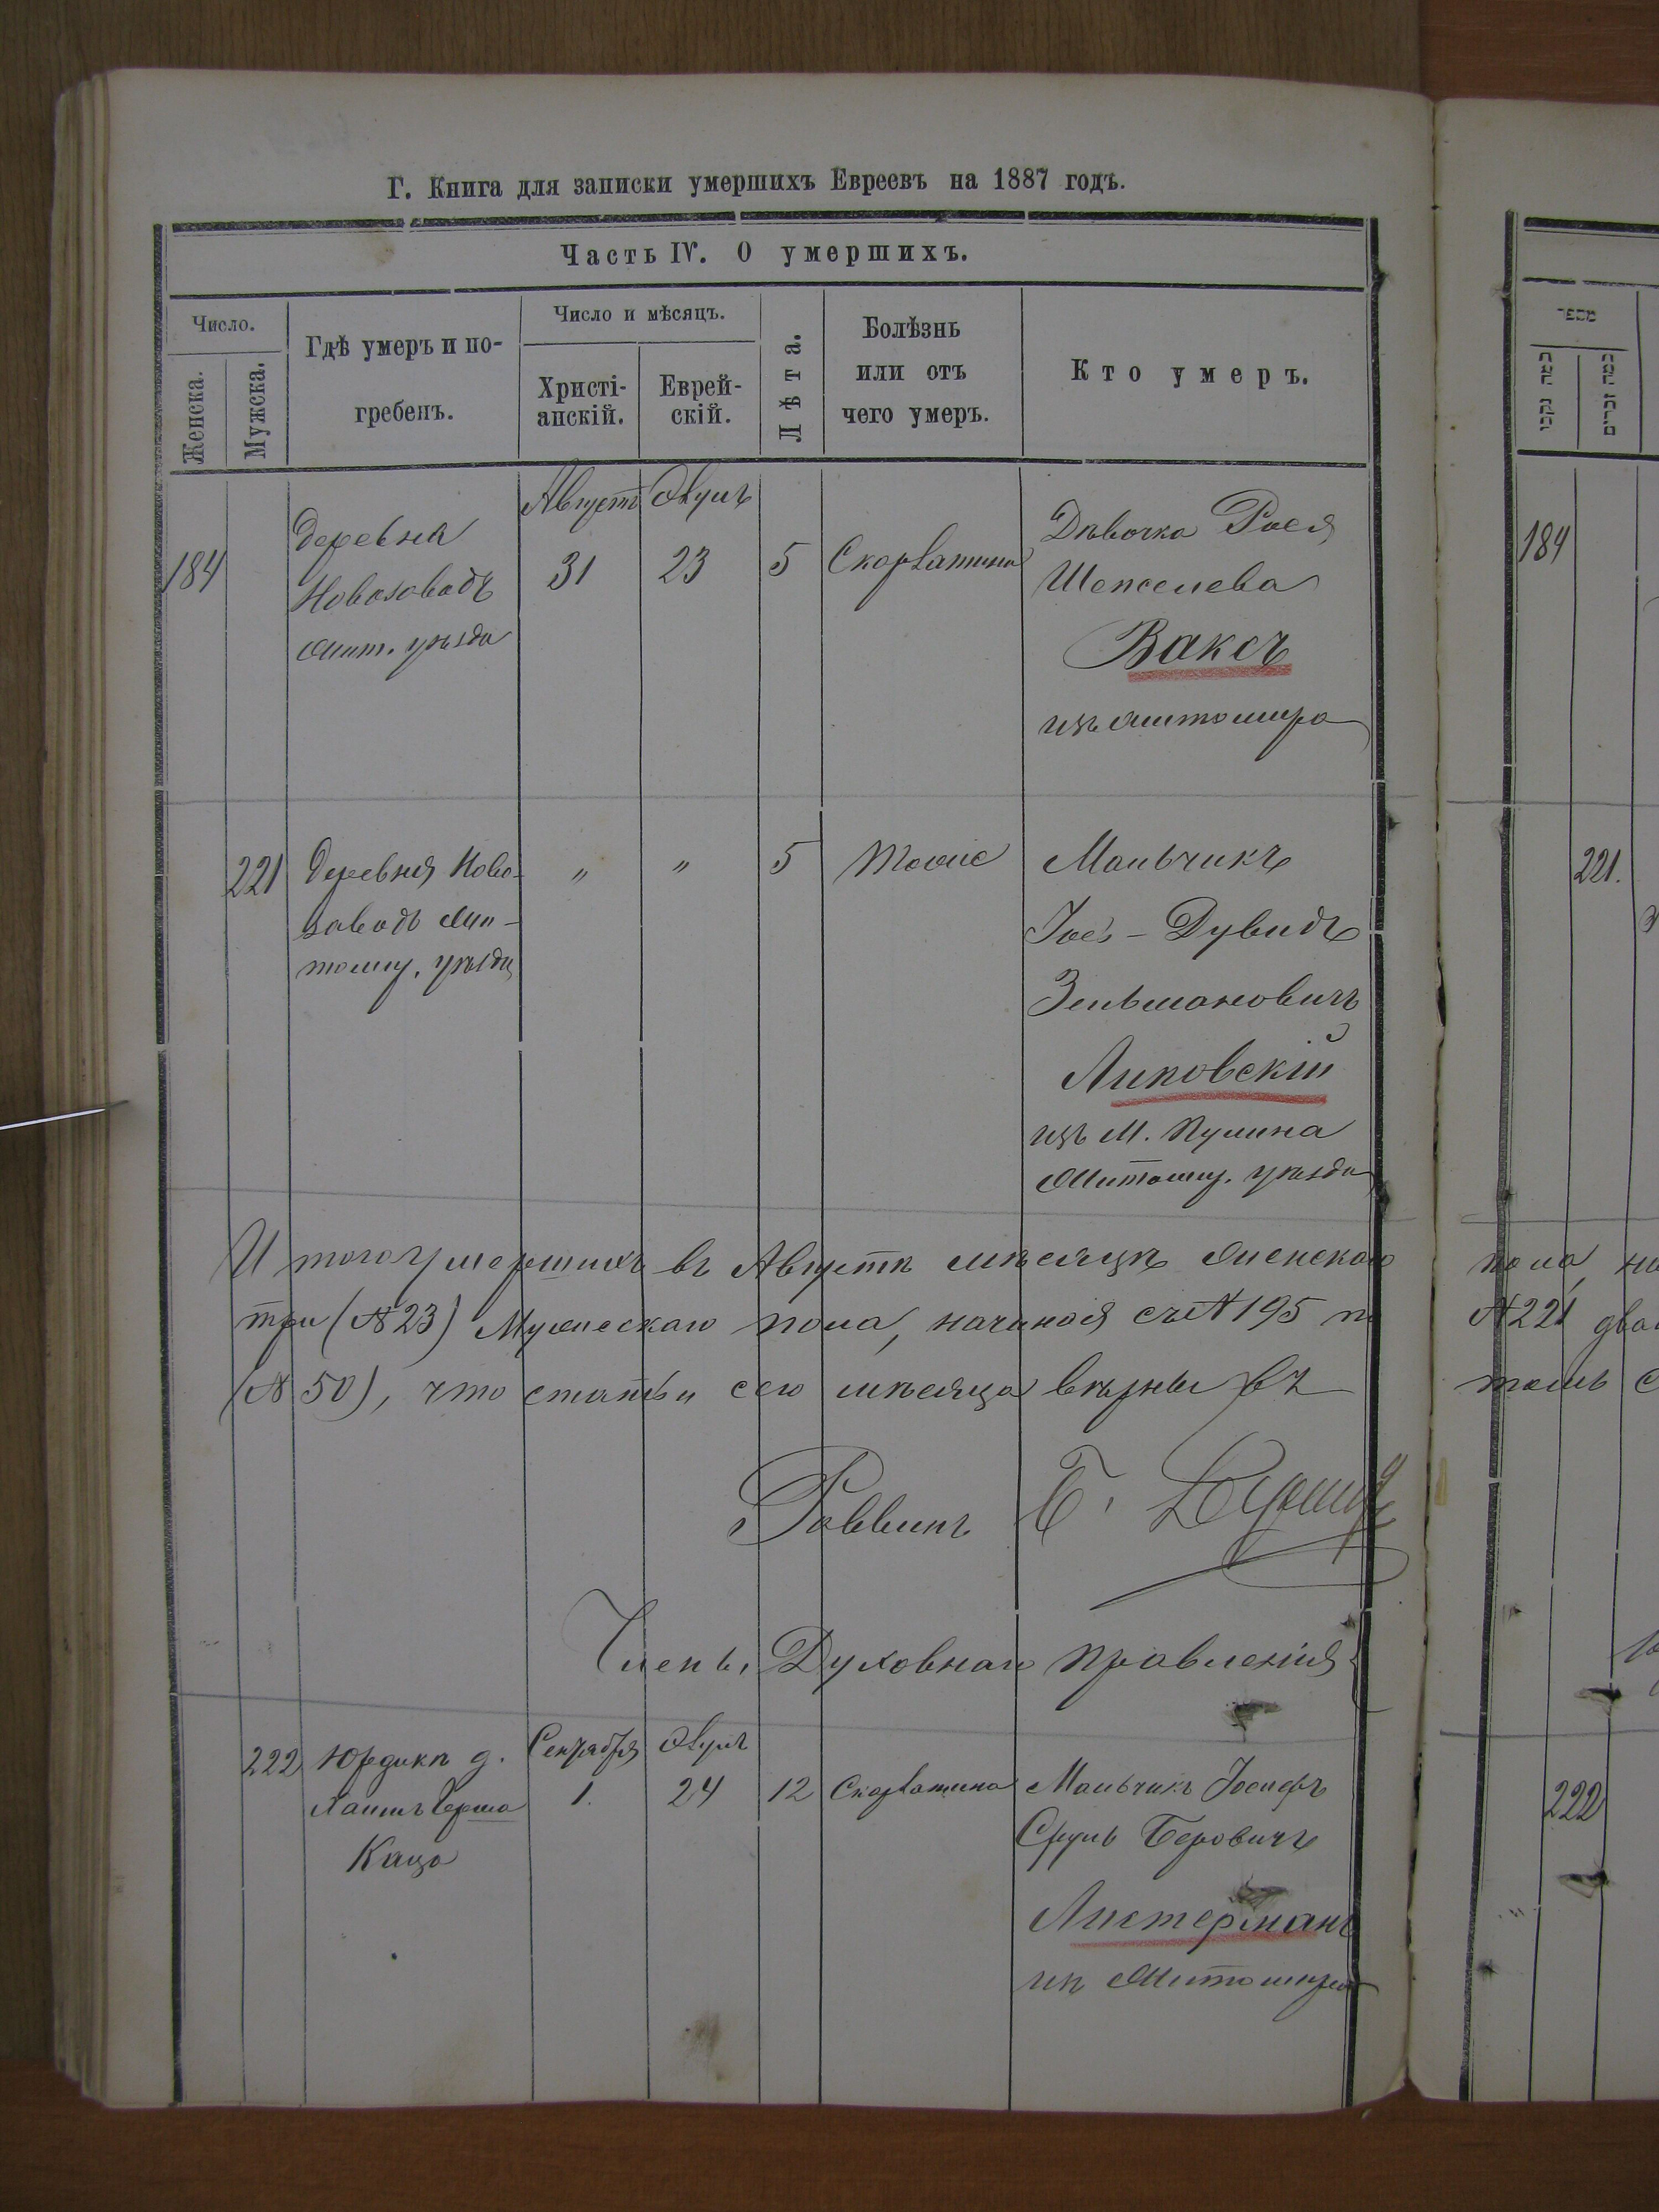 Г. Книга для записки умершихъ Евреевъ на 1887 годъ.
Часть IV. О умершихъ.
Число.
Женска.
Мужска.
Гдѣ умеръ и по-
гребенъ.
Число и мѣсяцъ.
Христі-
анскій.
Еврей-
скій.
Лѣта.
Болѣзнь
или отъ
чего умеръ.
Кто умеръ.
184
Деревня
Новозаводъ
Жит. уѣзда
Августъ
31
Элулъ
23
5
Скарлатина
Дѣвочка Рося
Шепселева
Ваксъ
изъ Житомира
221
Деревня Ново-
заводъ Жи-
томир. уѣзда
"
"
5
Тоже
Мальчикъ
Іось-Дувидъ
Зельмановичъ
Липовскій
изъ М. Пулина
Житомир. уѣзда
Итого умершихъ въ Августѣ мѣсяцѣ Женскаго
три (№ 23) Мужескаго пола, начиная съ № 195 по
(№ 50), что статьи сего мѣсяца вѣрны въ
Раввинъ
Члены Духовнаго Правленія
222
Хаимъ Герша
Каца
Сентября
1.
Элулъ
24
12
Скарлатина
Мальчикъ Іосифъ
Сруль Беровичъ
Листерманъ
изъ Житомира
מספר
184
221.
пола
№ 221
томъ
222